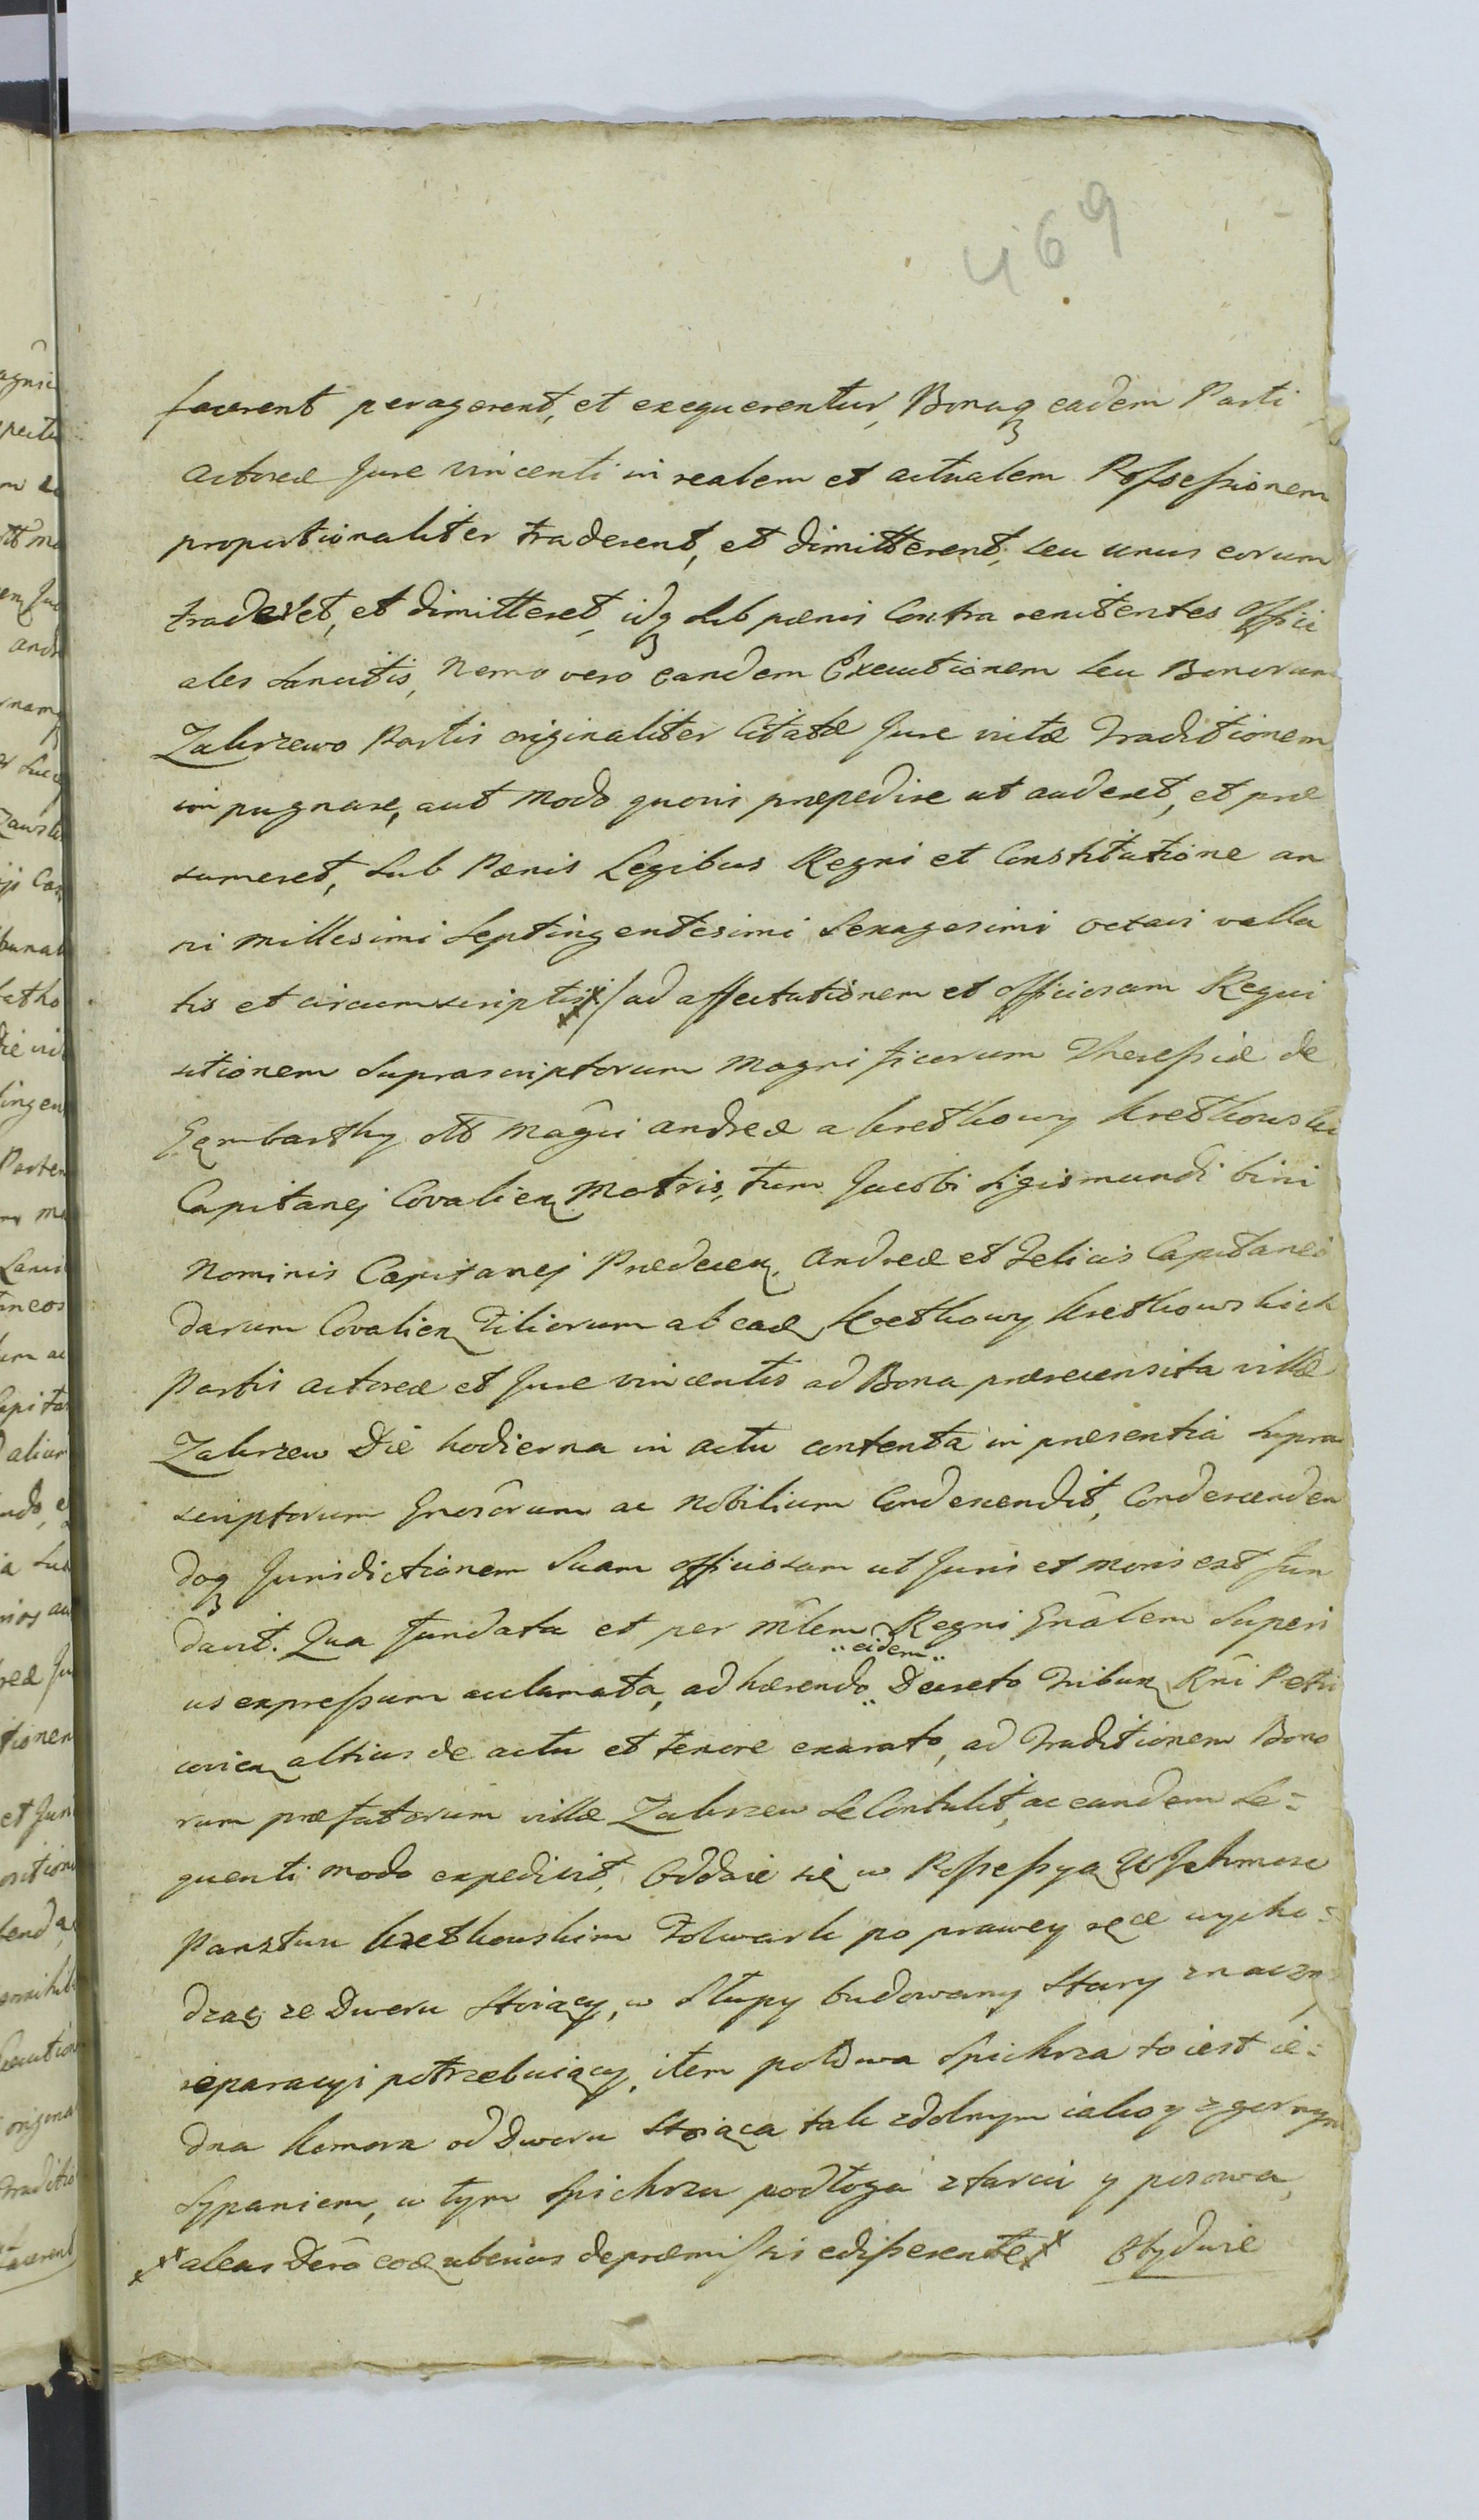 469
facerent peragerent, et exequerentur, Bonaq eadem Parti
actoreæ Jure vincenti in realem et actualem Possessionem
proportionaliter traderent, et dimitterent, seu unus eorum
traderet, et dimitteret, idq sub pænis Contra renitentes Offici
ales sancitis, Nemo vero eandem Executionem seu Bonorum
Zakrzewo Partis originaliter Citatæ Jure victæ Traditionem
impugnare, aut modo quovis præpedire ut auderet, et præ
sumeret, sub Pænis Legibus Regni et Constitutione an
ni millesimi septingentesimi sexagesimi octavi valla
tis et circumscriptis ad affectationem et officiosam Requi
sitionem suprascriptorum Magnificorum Theressiæ de
Gembarthy olt Magci Andreæ a Krethowy Krethowski
Capitanej Covalien Matris, tum Jacobi Sigismundi bini
Nominis Capitanej Prædecen, Andreæ et Felicis Capitanei
darum Covalien Filiorum ab eadę Krethowy Krethowskich
Partis actoreæ et Jure vincentis ad Bona prærecensita villæ
Zakrzew Die hodierna in actu contenta in præsentia supra
scriptorum Gnosorum ac Nobilium Condescendit, Condescenden
doq Jurisdictionem suam officiosam ut Juris et moris est fun
davit. Qua fundata et per Mlem Regni Gnalem superi
..eidem..
us expressum acclamata, adhærendo Decreto Tribun Rni Petri
covien altius de actu et tenore exarato, ad Traditionem Bono
rum præfatorum villæ Zakrzew se Contulit, ac eandem se=
quenti modo expedivit, Oddaie się w Possessyą WJchmosc
Panstwu Krethowskim Folwark po prawey ręce wycho=
dząc ze Dworu stoiący, w Słupy budowany stary znaczn
reparacyi potrzebuiący, item połowa Spichrza to iest ie=
dna Komora od Dworu stoiąca tak zdolnym iako y zgornym
Sypaniem, w tym Spichrzu podłoga z tarcic y posowa,
aleas Dero eoæ uberius de præmissis edisserente Obydwie